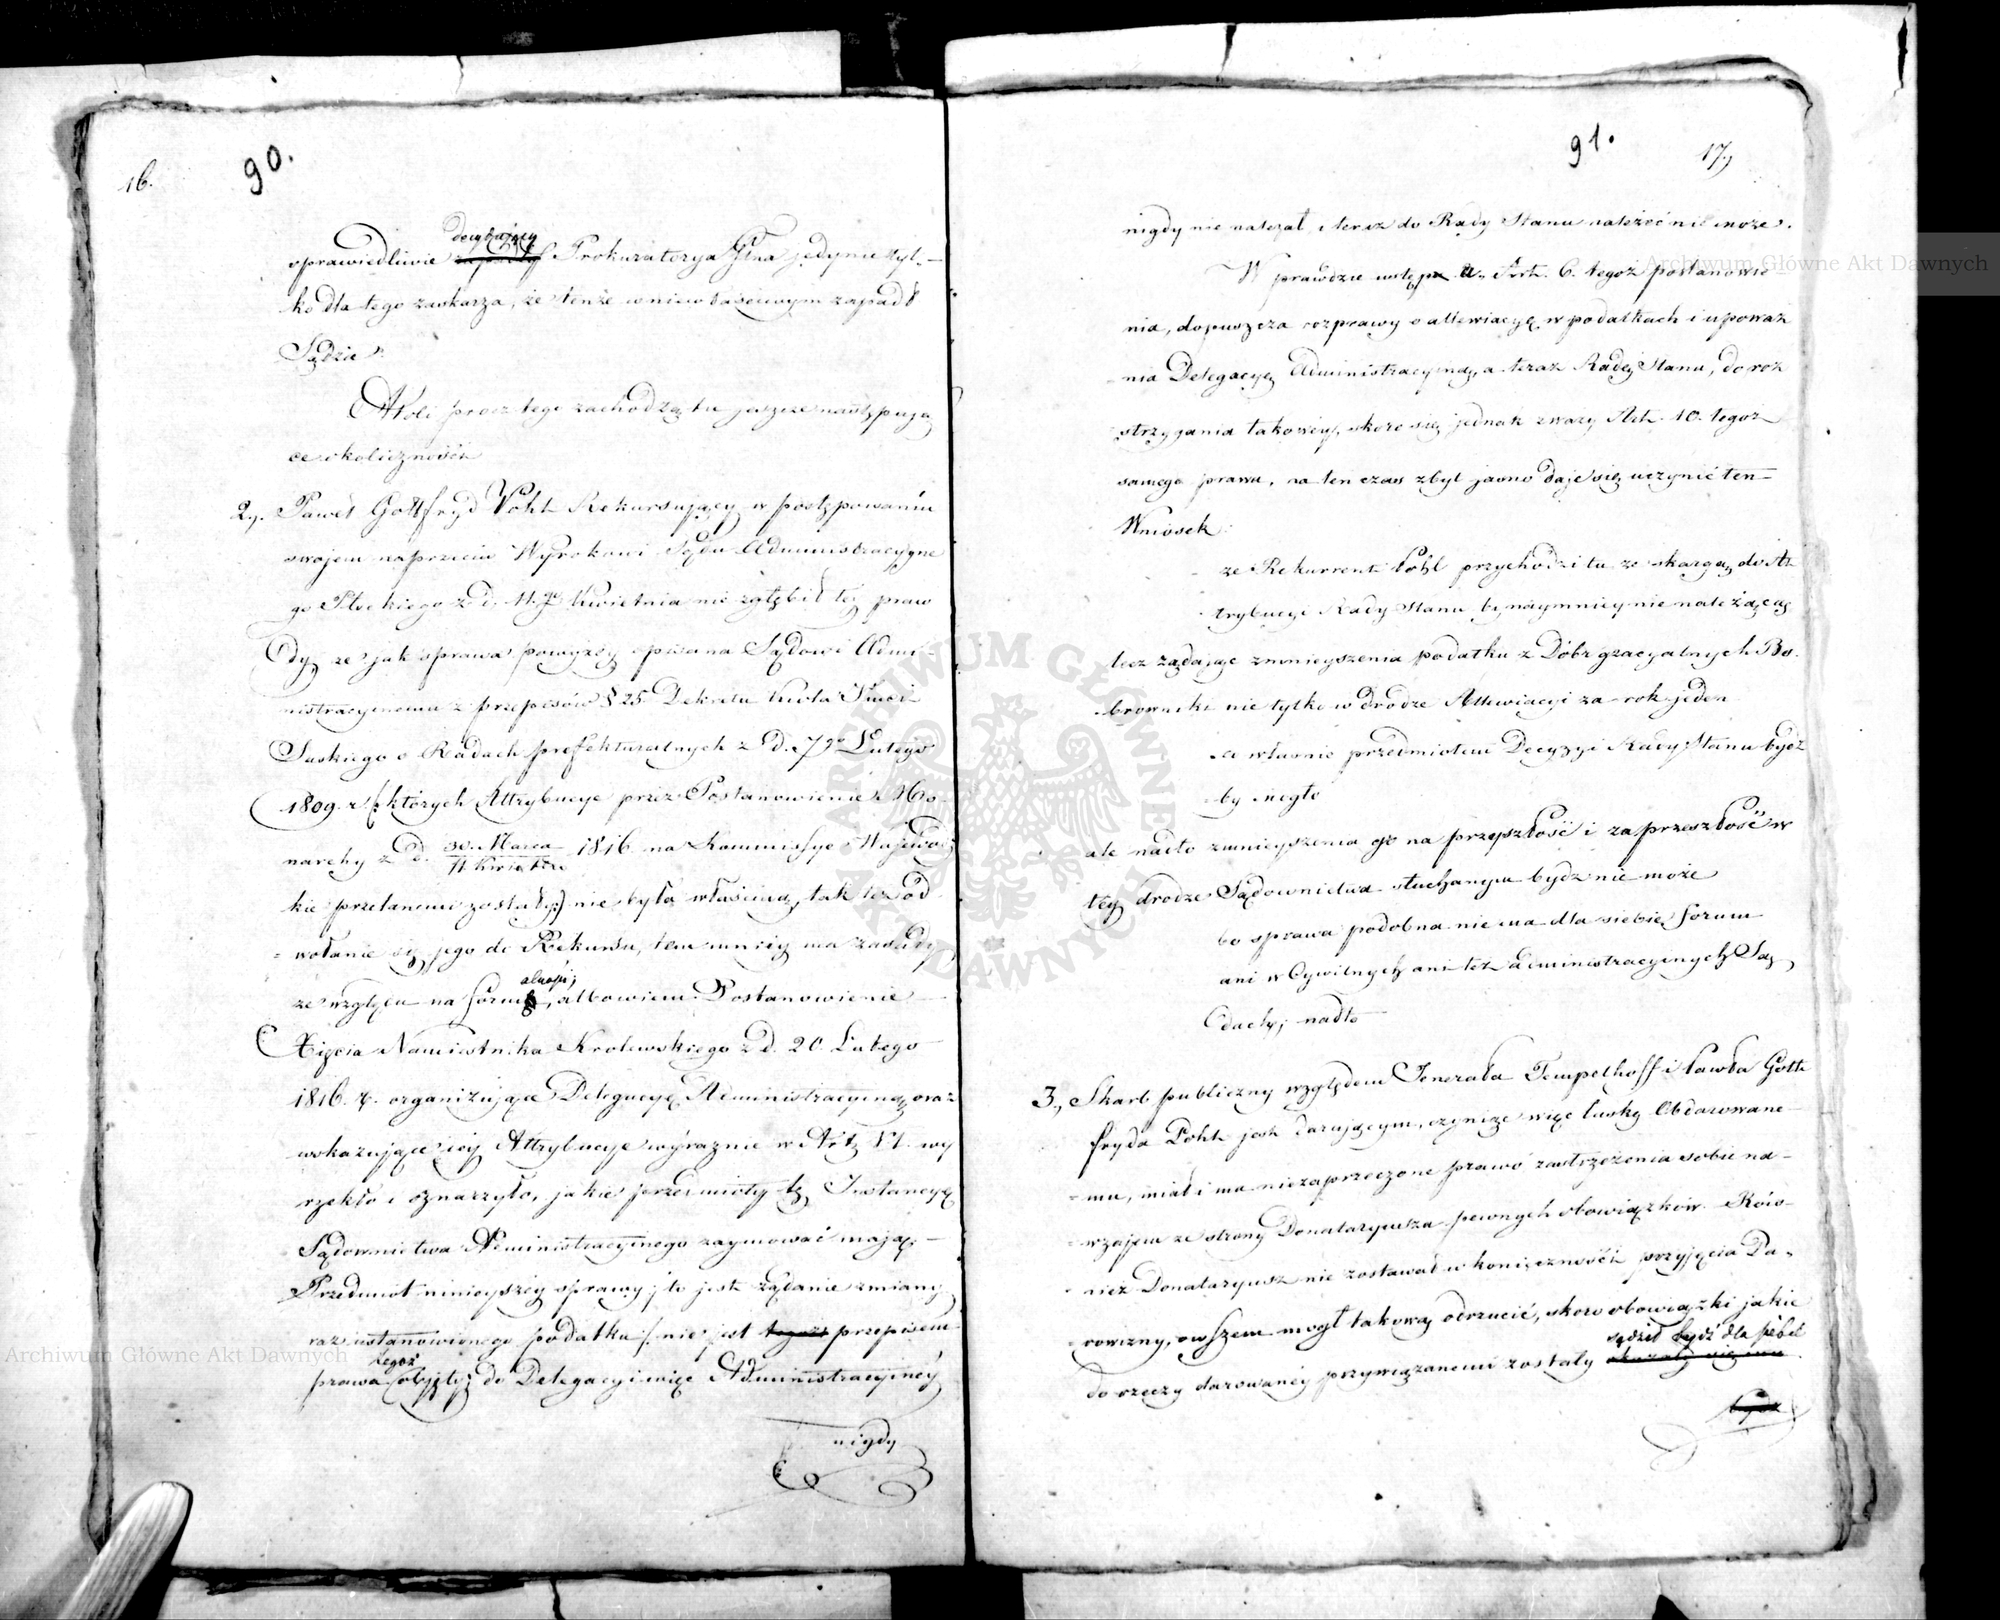 16.
90.
decydujący
sprawiedliwie Prokuratorya Głna jedynie tyl-
ko dla tego zaskarza, że tenże w niewłaściwym zapadł
Sądzie.
Atoli procz tego zachodzą tu jeszcze następują
ce okoliczności
2. Paweł Gottfryd Pohl Rekursujący w postępowaniu
swojem naprzeciw Wyrokowi Sądu Administracyjne
go Płockiego z d. 11. Kwietnia nie zgłębił tej praw
dy, że jak sprawa powyżej opisana Sądowi Admi-
nistracyjnemu z przepisów § 25 Dekretu Króla Jmci
Saskiego o Radach prefekturalnych z d. 7go Lutego
1809. r. /: których Attrybucye przez Postanowienie Mo-
narchy z d. 30. Marca / 11 Kwietnia 1816. na Kommissye Wojewódz
kie przelanemi zostały :/ nie była właściwą, tak też od
wołanie się jego do Rekursu, tem mniej ma zasady
ze względu na formę, albowiem Postanowienie
Xięcia Namiestnika Krolewskiego z d. 20. Lutego
1816. r. organizujące Delegacyę Administracyjną oraz
wskazujące jej Attrybucye wyraznie w Art. VI. wy
rzekło i oznaczyło, jakie przedmioty tę Instancyę
Sądownictwa Administracyjnego zaymować mają;
Przedmiot niniejszej sprawy; to jest żądanie zmiany
raz ustanowionego podatku /: nie jest tegoż przepisem
tegoż
prawa objęty; do Delegacyi więc Administracyjnej
nigdy
91.
17.
nigdy nie należał i teraz do Rady Stanu należeć nie może.
W prawdzie wstęp a. Art. 6. tegoż postanowie
nia, dopuszcza rozprawy o allewiacyę w podatkach i upoważ
nia Delegacyę Administracyjną, a teraz Radę Stanu, do roz
strzygania takowej, skoro się jednak zwazy Art. 10. tegoż
samego prawa, na ten czas zbyt jasno daje się uczynić ten-
Wniosek:
że Rekurrent Pohl przychodzi tu ze skargą do At
trybucyi Rady Stanu bynaymniey nie należącą
lecz żądając zmnieyszenia podatku z Dóbr gracyalnych Bo-
browniki nie tylko w drodze Allewiacyi za rok jeden
co właśnie przedmiotem Decyzyi Rady Stanu bydź
by mogło
ale nadto zmnieyszenia go na przyszłość i za przeszłość w
tej drodze Sądownictwa słuchanym bydź nie może
bo sprawa podobna nie ma dla siebie forum
ani w Cywilnych ani też administracyjnych Są-
dach; nadto
3. Skarb publiczny względem Jenerała Tempelhoff i Pawła Gott
fryda Pohl jest darującym, czyniąc więc łaskę Obdarowane-
mu, miał i ma niezaprzeczone prawo zastrzeżenia sobie na-
wzajem ze strony Donataryusza pewnych obowiązków. Rów-
nież Donataryusz nie zostawał w konieczności przyjęcia Da-
rowizny, owszem mogł takową odrzucić, skoro obowiązki jakie
sądził bydź dla siebie
do rzeczy darowanej przywiązanemi zostały
Archiwum Główne Akt Dawnych
Archiwum Główne Akt Dawnych
ARCHIWUM GŁÓWNE AKT DAWNYCH